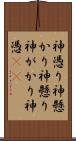 神憑り神懸
かり神懸
神がかり神
憑